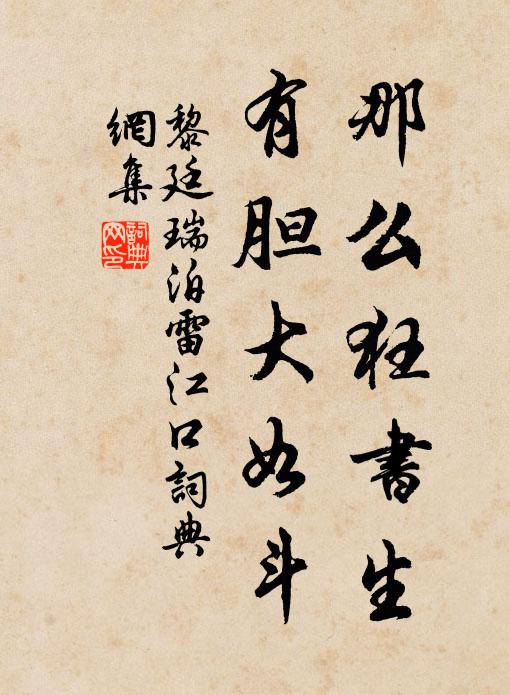 那么狂書生
有胆大如斗
黎廷瑞泊雷江口詞典
網集
詞典
网印